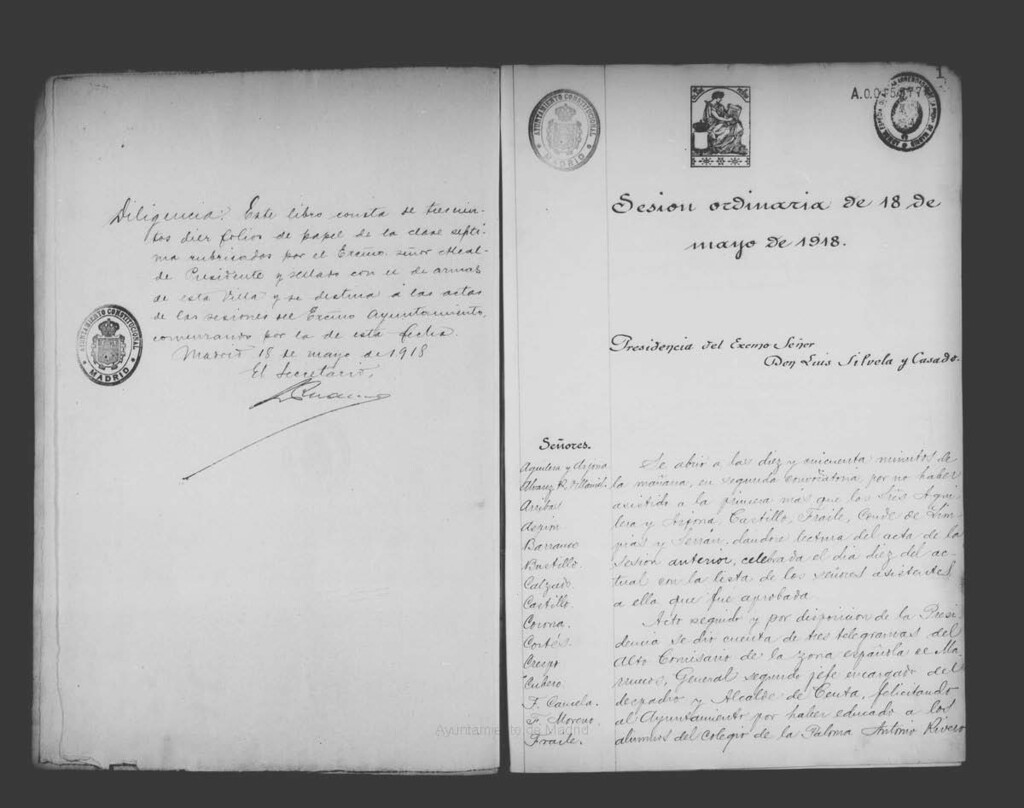 Diligencia. Este libro consta de trescien-
tos diez folios de papel de la clase septi-
ma rubricados por el Excmo. señor Alcal-
de Presidente y sellado con el de armas
de esta Villa y se destina á las actas
de las sesiones del Excmo Ayuntamiento,
comenzando por la de esta fecha.
Madrid 18 de mayo de 1918
El Secretario,
AYUNTAMIENTO CONSTITUCIONAL
MADRID
AYUNTAMIENTO CONSTITUCIONAL
MADRID
1
Sesion ordinaria de 18 de
mayo de 1918.
Presidencia del Excmo Señor
Don Luis Silvela y Casado.
Señores.
Aguilera y Arjona
Alvarez R. Villamil
Arribas
Barranco
Bastillo.
Calzado.
Castillo.
Corona.
Cortés.
Crespo
Cubero
F. Cancela.
F. Moreno.
Fraile.
Se abrió a las diez y cincuenta minutos de
la mañana, en segunda convocatoria, por no haber
asistido a la primera más que los Sres Agui-
lera y Arjona, Castillo, Fraile, Conde de Lim-
pias y Serrán, dandose lectura del acta de la
sesión anterior, celebrada el día diez del ac-
tual con la lista de los señores asistentes
a ella que fue aprobada.
Acto seguido y por disposición de la Presi-
dencia se dió cuenta de tres telegramas del
Alto Comisario de la zona española de Ma-
rruecos, General segundo jefe encargado del
despacho y Alcalde de Ceuta, felicitando
al Ayuntamiento por haber educado a los
alumnos del Colegio de la Paloma Antonio Rivero
Ayuntamiento de Madrid